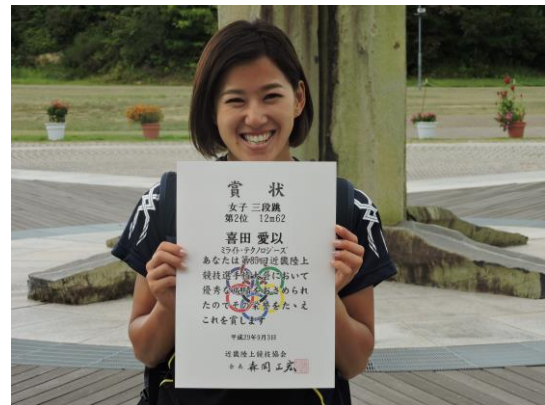 賞状
女子 三段跳
第2位 12m62
喜田 愛以
ミライト・テクノロジーズ
あなたは第85回近畿陸上
競技選手権大会において
優秀な成績をおさめられ
たのでその栄誉をたゝえ
これを賞します
近畿陸上競技協会
会長 森岡正宏